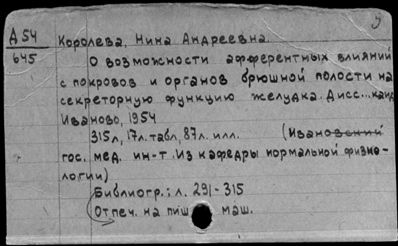 Д54 Королева, Нина Андреевна.
645
О возможности афферентных влияний
с покровов и органов брюшной полости на
секреторную функцию желудка. Дисс...канд
Иваново, 1954
315л, 17л. табл, 87л. илл. (Ивановский
гос. мед. ин-т. Из кафедры нормальной физио-
логии)
Библиогр.: л. 291-315
Отпеч. на пиш. маш.